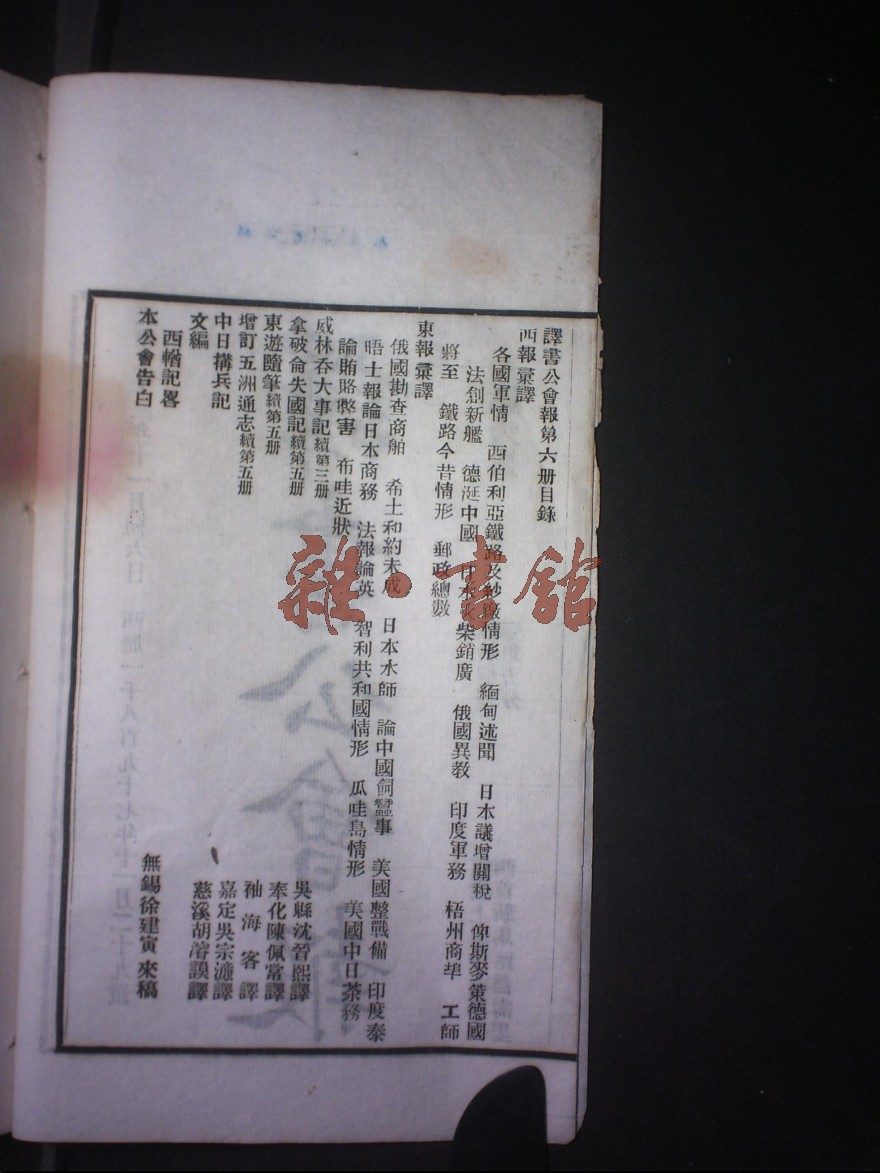 譯書公會報第六册目錄
西報彙譯
各國軍情 西伯利亞鐵路及紗廠情形 緬甸述聞 日本議增關稅 俾斯麥策德國
法創新艦 德涎中國 日本火柴銷廣 俄國異教 印度軍務 梧州商埠 工師
將至 鐵路今昔情形 郵政總數
東報彙譯
俄國勘查商舶 希土和約未成 日本水師 論中國飼蠶事 美國整戰備 印度泰
晤士報論日本商務 法報論英 智利共和國情形 瓜哇島情形 美國中日茶務
論賄賂弊害 布哇近狀
威林吞大事記續第三册 吳縣沈晉熙譯
拿破侖失國記續第五册 奉化陳佩常譯
東遊隨筆續第五册 袖海客譯
增訂五洲通志續第五册 嘉定吳宗濂譯
中日搆兵記 慈溪胡濬謨譯
文編
西輶記畧 無錫徐建寅來稿
本公會告白
雜·書館